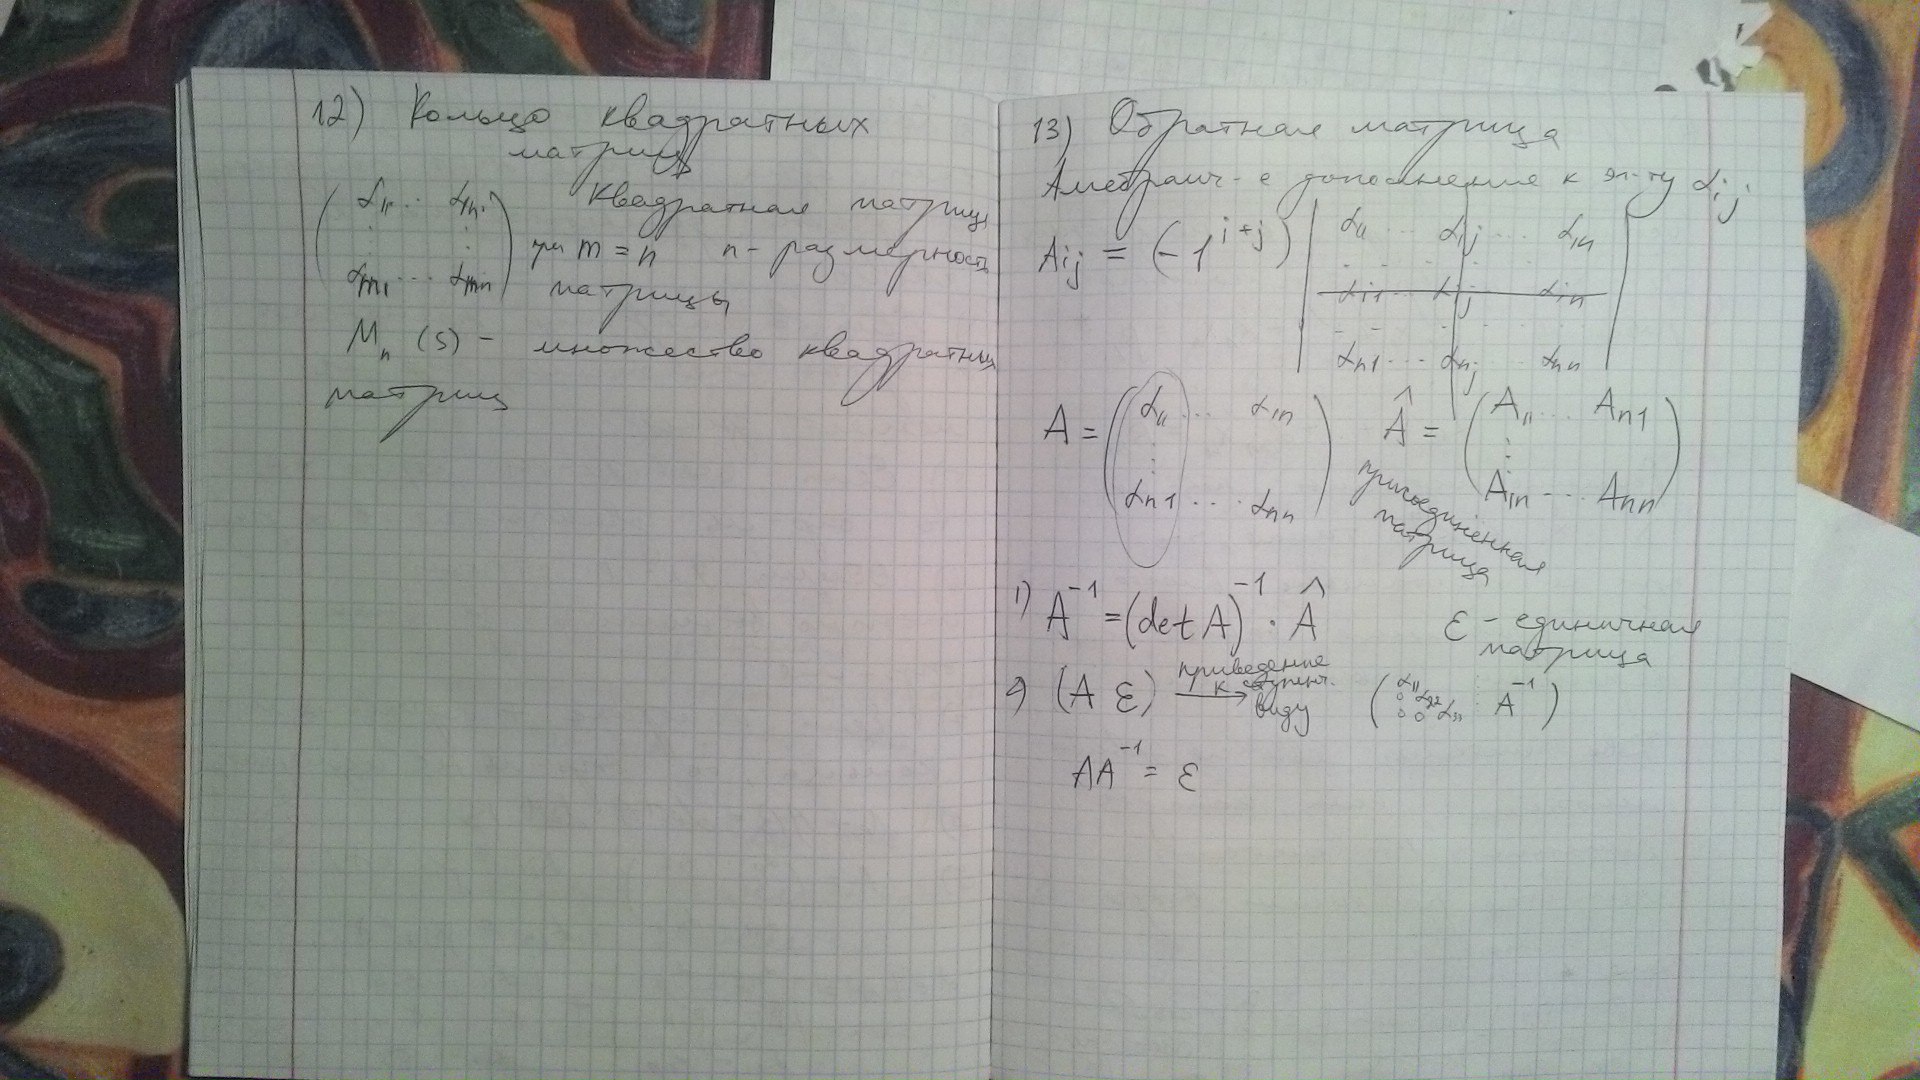 12) Кольцо квадратных
матриц
( α₁₁ ... α₁ₙ ) Квадратная матрица
⋮ ⋮ при m = n n - размерность
( αₘ₁ ... αₘₙ ) матрицы
Mₙ (S) - множество квадратных
матриц
13) Обратная матрица
Алгебраич-е дополнение к эл-ту αᵢⱼ.
Aᵢⱼ = (-1^{i+j}) | α₁₁ ... α₁ⱼ ... α₁ₙ |
| αᵢ₁ ... αᵢⱼ ... αᵢₙ |
| αₙ₁ ... αₙⱼ ... αₙₙ |
A = ( α₁₁ ... α₁ₙ ) Â = ( A₁₁ ... Aₙ₁ )
⋮ ⋮
( αₙ₁ ... αₙₙ ) ( A₁ₙ ... Aₙₙ )
присоединённая
матрица
1) A⁻¹ = (det A)⁻¹ · Â ε - единичная
матрица
2) (A ε) → приведение
к ступенч.
виду
( α₁₁
0 α₂₂
0 0 α₃₃ ⋮ A⁻¹ )
AA⁻¹ = ε